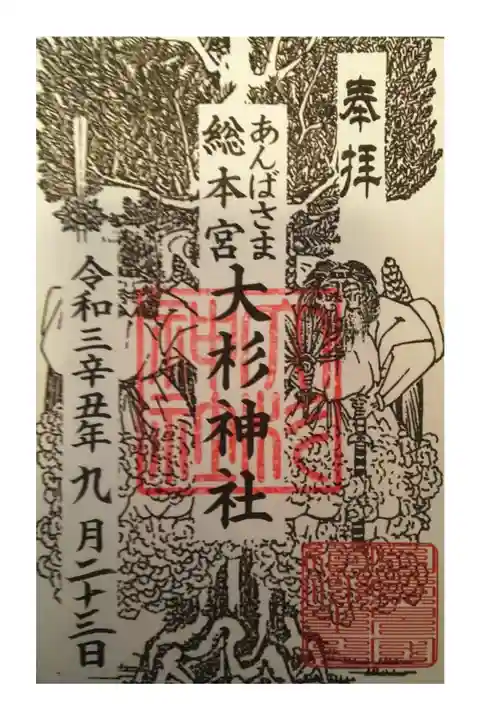 奉拝
あんばさま
総本宮
大杉神社
令和三辛丑年九月二十三日